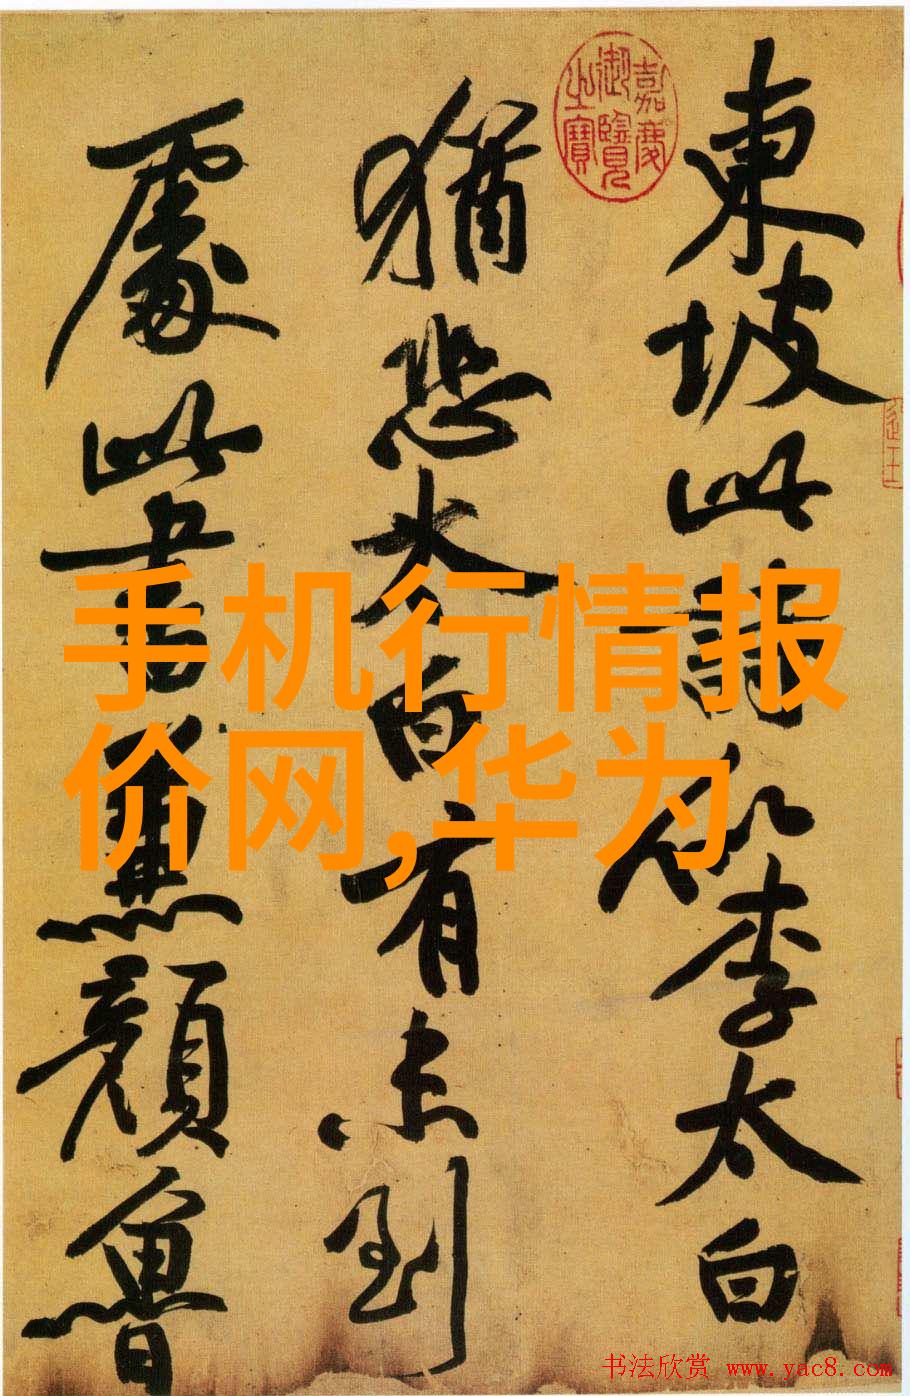 東坡此詩似李太白
猶恐太白有未到
處此書兼顏魯
嘉慶
御覽
之寶
手机行情报
价网,华为
书法欣赏 www.yac8.com